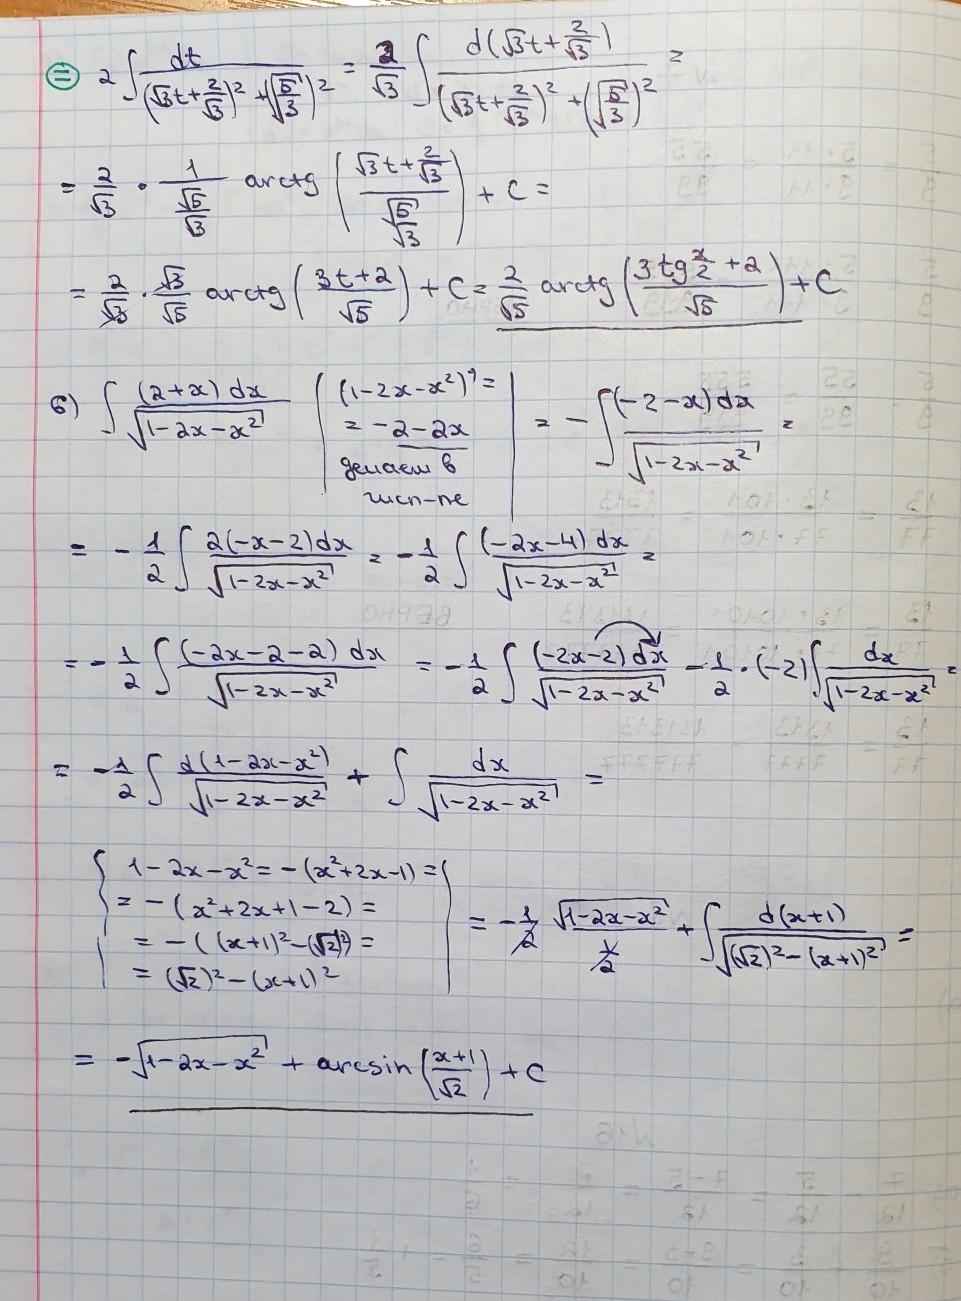 = 2 ∫ dt / ((√3t + 2/√3)² + (√(5/3))²) = 2/√3 ∫ d(√3t + 2/√3) / ((√3t + 2/√3)² + (√(5/3))²) =
= 2/√3 · 1/(√5/√3) arctg ((√3t + 2/√3) / (√5/√3)) + C =
= 2/√3 · √3/√5 arctg (3t+2 / √5) + C = 2/√5 arctg ((3tg x/2 + 2) / √5) + C
б) ∫ (2+x) dx / √(1-2x-x²) | (1-2x-x²)' = | = - ∫ (-2-x) dx / √(1-2x-x²) =
= -2-2x
делаем в
числ-ле
= - 1/2 ∫ 2(-x-2)dx / √(1-2x-x²) = - 1/2 ∫ (-2x-4) dx / √(1-2x-x²) =
= - 1/2 ∫ (-2x-2-2) dx / √(1-2x-x²) = - 1/2 ∫ (-2x-2) dx / √(1-2x-x²) - 1/2 · (-2) ∫ dx / √(1-2x-x²) =
= - 1/2 ∫ d(1-2x-x²) / √(1-2x-x²) + ∫ dx / √(1-2x-x²) =
1-2x-x² = -(x²+2x-1) =
= -(x²+2x+1-2) =
= -((x+1)²-(√2)²) =
= (√2)²-(x+1)²
= - 1/2 √(1-2x-x²) / (1/2) + ∫ d(x+1) / √((√2)²-(x+1)²) =
= -√(1-2x-x²) + arcsin ((x+1)/√2) + C